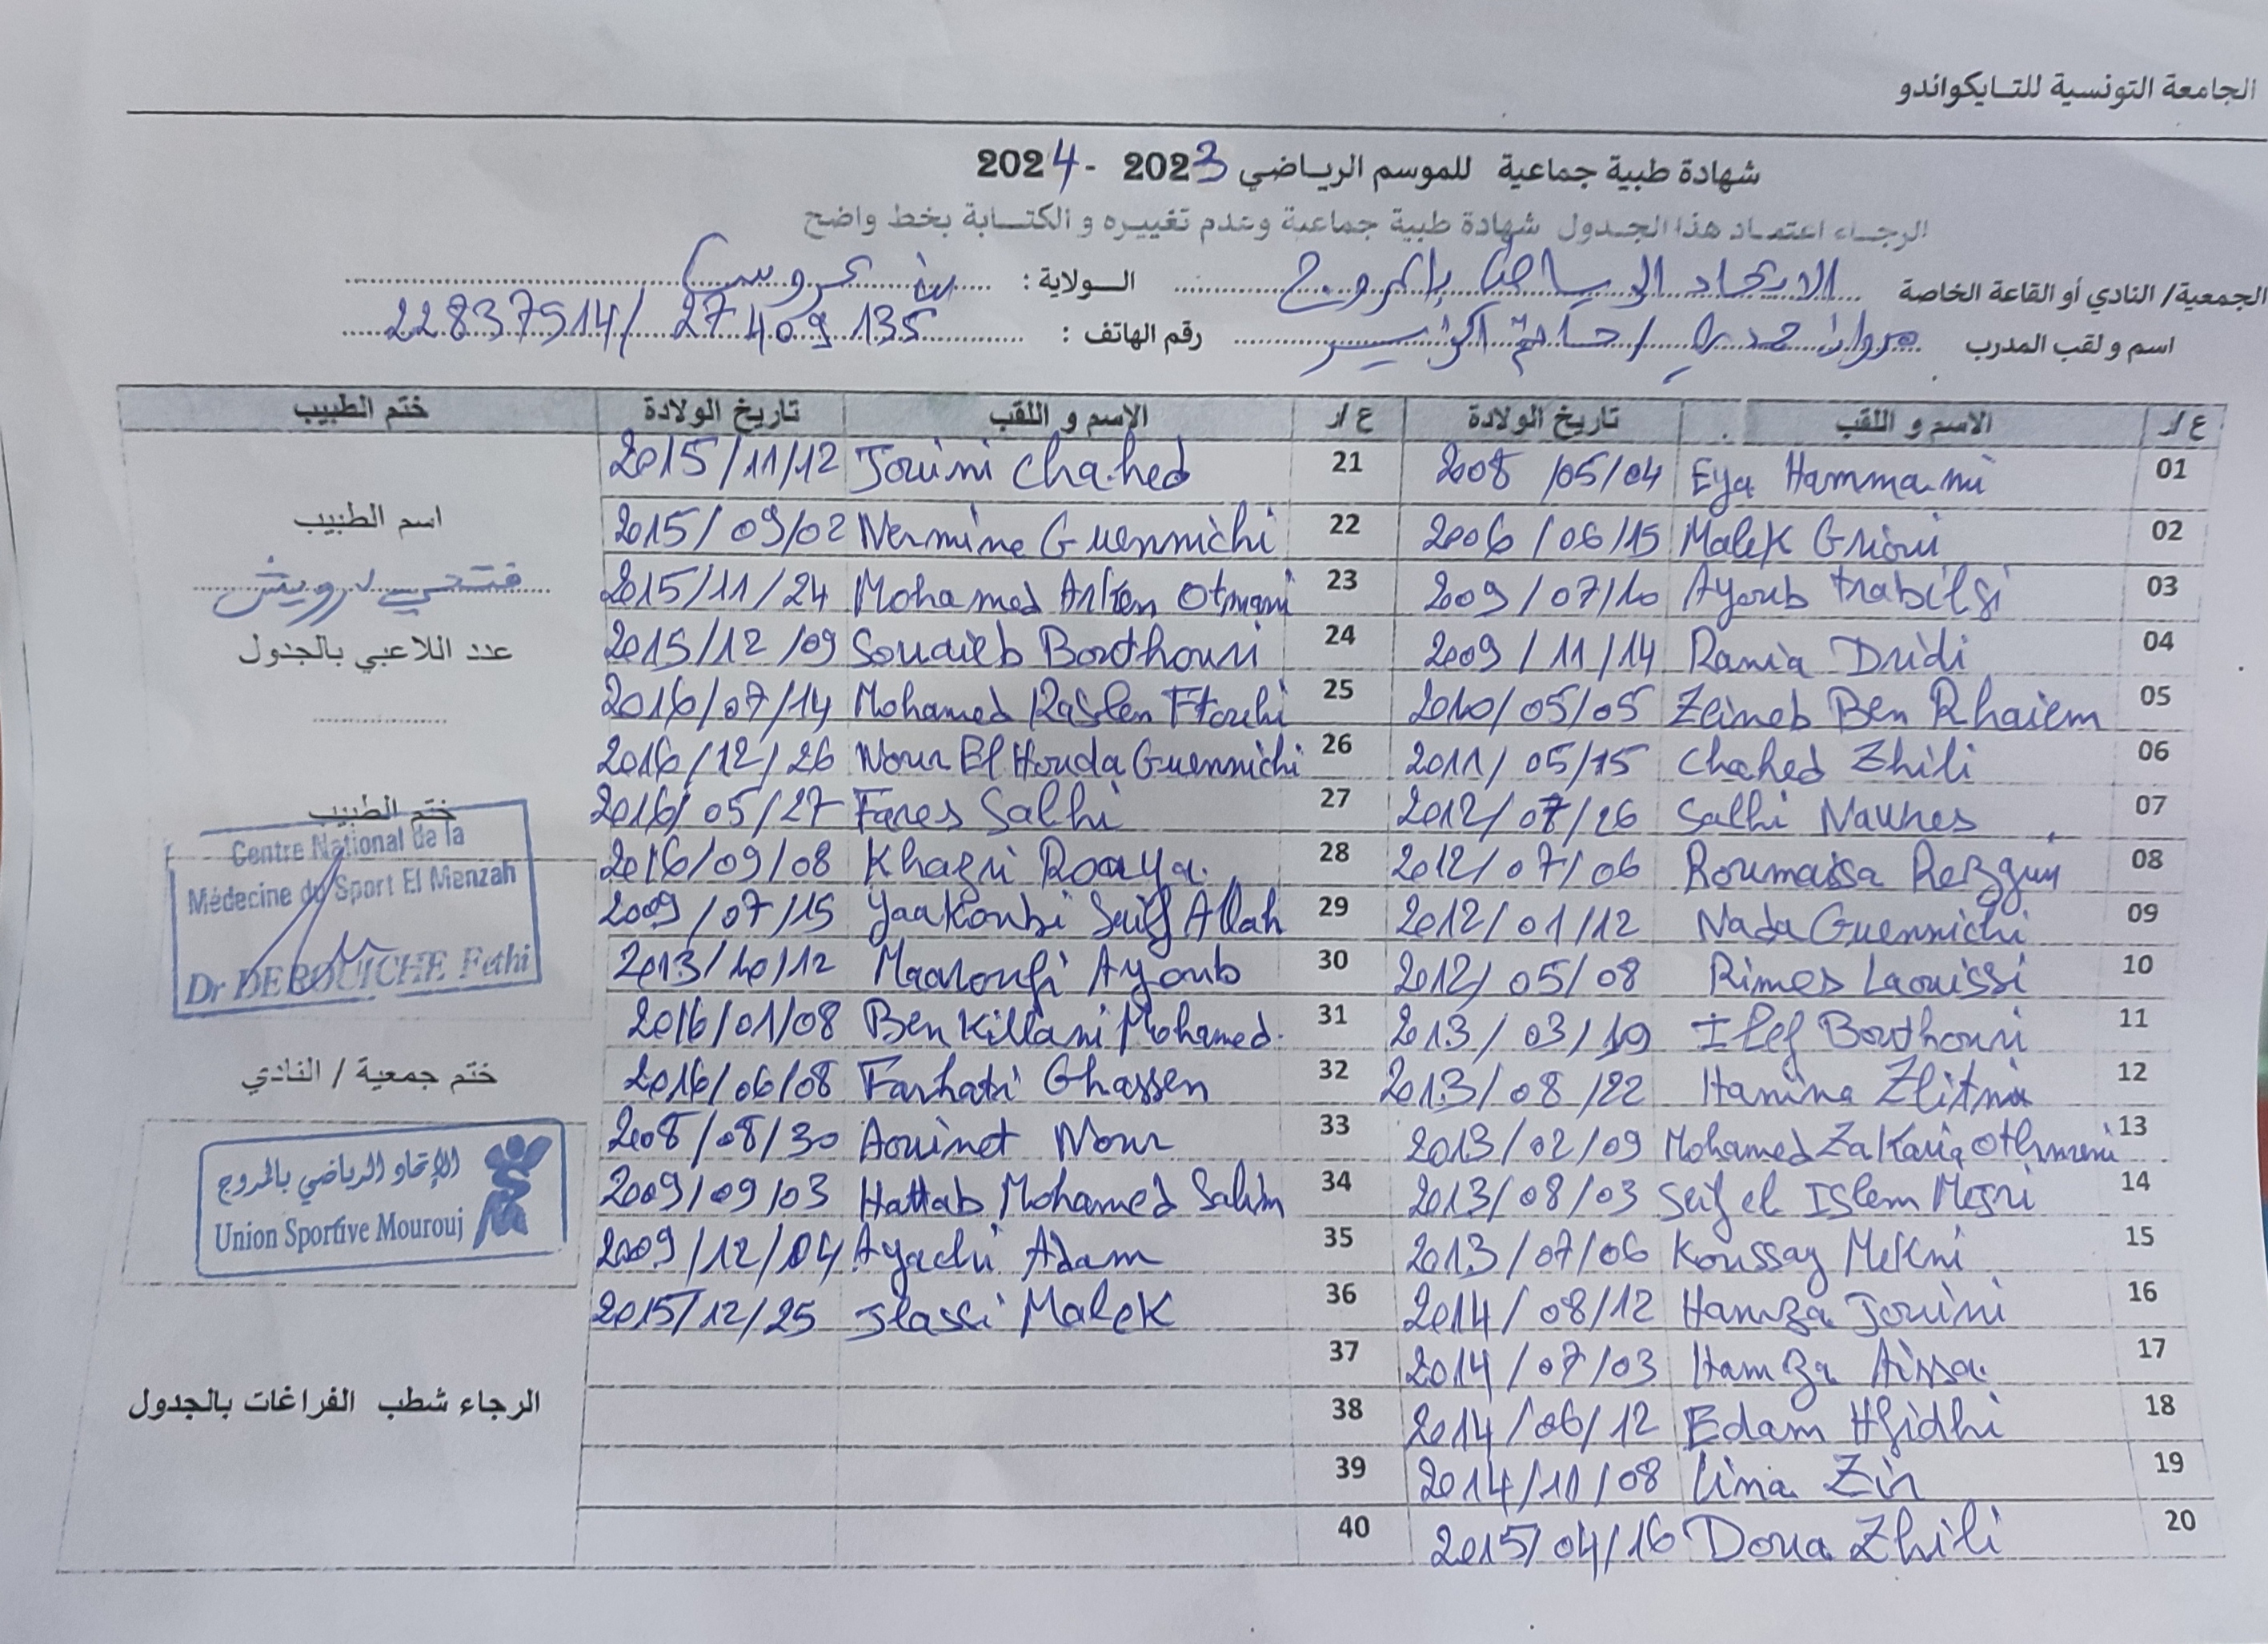 الجامعة التونسية للتايكواندو
شهادة طبية جماعية للموسم الرياضي 2023 - 2024
الرجاء اعتماد هذا الجدول شهادة طبية جماعية وعدم تغييره و الكتابة بخط واضح
الجمعية/ النادي أو القاعة الخاصة الاتحاد الرياضي بالمروج الولاية : بن عروس
اسم و لقب المدرب مروان حمدي / حاتم رقم الهاتف : 22837514 / 27 409 135
ع/ر الاسم و اللقب تاريخ الولادة ع/ر الاسم و اللقب تاريخ الولادة ختم الطبيب
01 Eya Hammami 2008/05/04 21 Jouini Chahed 2015/11/12
02 Malek Grioui 2006/06/15 22 Nermine Guennichi 2015/09/02
03 Ayoub trabilsi 2009/07/10 23 Mohamed Otmani 2015/11/24
04 Rania Dridi 2009/11/14 24 Souaieb Bouthouri 2015/12/09
05 Zeineb Ben Rhaiem 2010/05/05 25 Mohamed Raslen Ftouhi 2016/07/14
06 Chahed Zhili 2011/05/15 26 Nour El Houda Guennichi 2016/12/26
07 Salhi 2012/07/26 27 Fares Salhi 2016/05/27
08 Roumaissa Rezgui 2012/07/06 28 Khazri Roaya 2016/09/08
09 Nada Guennichi 2012/01/12 29 Yaakoubi Seif Allah 2009/07/15
10 Rimes Laouissi 2012/05/08 30 Maaroufi Ayoub 2013/10/12
11 Ilef Bouthouri 2013/03/19 31 Ben Killani Mohamed. 2016/01/08
12 Hanine Zlitni 2013/08/22 32 Farhati Ghassen 2016/06/08
13 Mohamed Zakaria Othmeni 2013/02/09 33 Aouinet Nour 2008/08/30
14 Seif el Islem Mejri 2013/08/03 34 Hattab Mohamed Salim 2009/09/03
15 Koussay Mekni 2013/07/06 35 Ayachi Adam 2009/12/04
16 Hamza Jouini 2014/08/12 36 Jlassi Malek 2015/12/25
17 Hamza Aissa 2014/07/03 37
18 Edam Hfidhi 2014/06/12 38
19 Lina Zin 2014/11/08 39
20 Doua Zhili 2015/04/16 40
اسم الطبيب
فتحي درويش
عدد اللاعبي بالجدول
ختم الطبيب
Centre National de la
Médecine du Sport El Menzah
Dr DEROUICHE Fethi
ختم جمعية / النادي
الإتحاد الرياضي بالمروج
Union Sportive Mourouj
الرجاء شطب الفراغات بالجدول